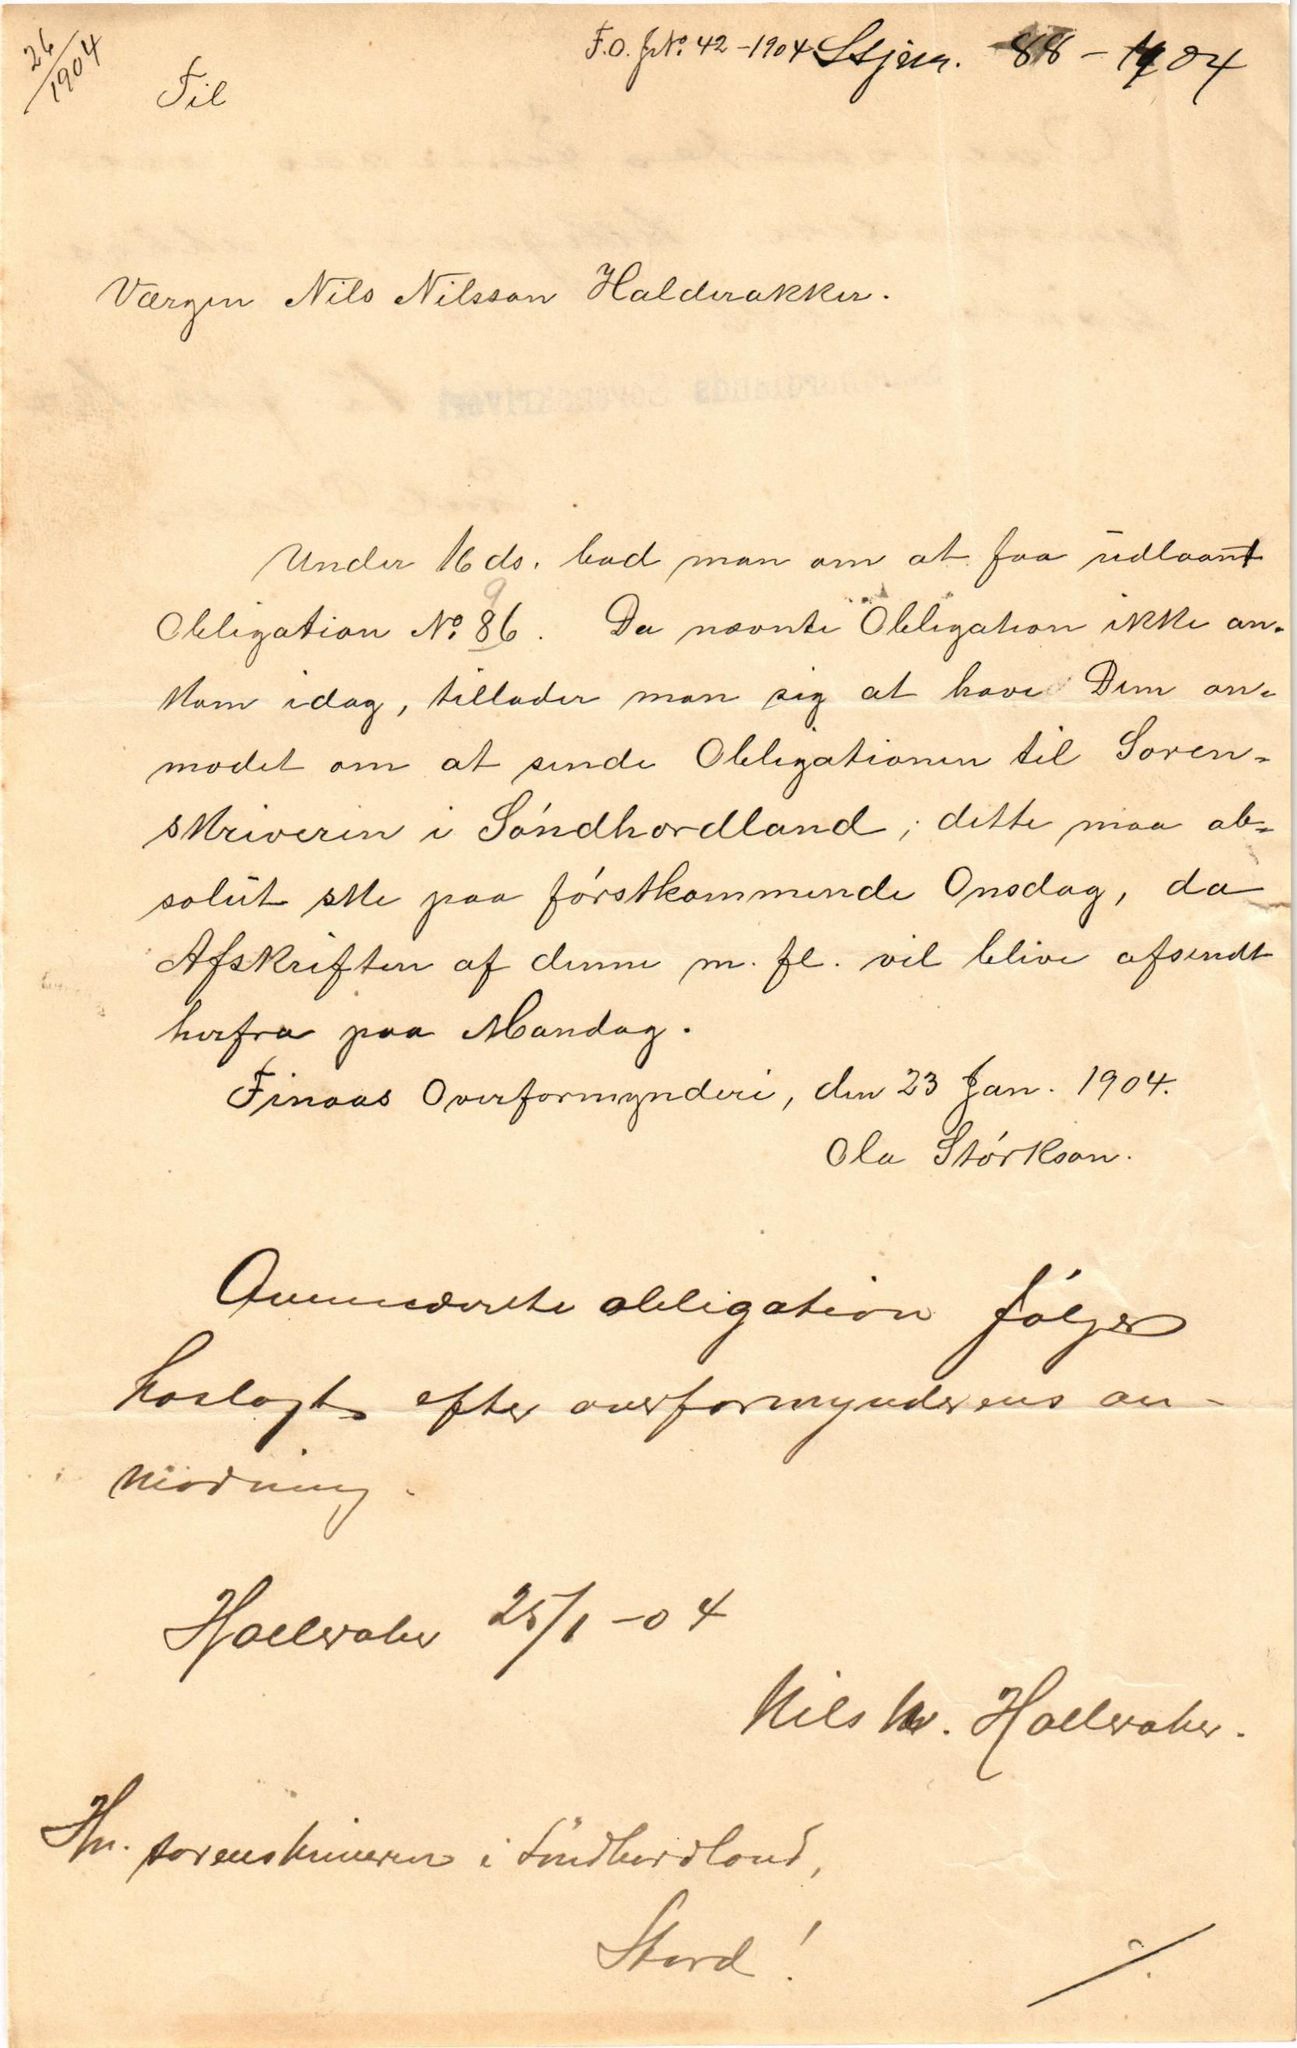 26/1904
F.O. J.No. 42 - 1904 Ssjrn. 88 - 1904
Til
Værgen Nils Nilsson Halderakker.
Under 16 ds. bad man om at faa udlaant
Obligation No. 86. Da nævnte Obligation ikke an-
9
kom idag, tillader man sig at have Dem an-
modet om at sende Obligationen til Soren-
skriveren i Söndhordland; dette maa ab-
solut ske paa förstkommende Onsdag, da
Afskriften af denne m. fl. vil blive afsendt
herfra paa Mandag.
Finaas Overformynderi, den 23 Jan. 1904.
Ola Störkson.
Ommeldte obligation følger
hoslagt efter overformynderens an-
modning.
25/1 - 04
Nils N.
Hr. sorenskriveren i Söndhordland,
Stord!